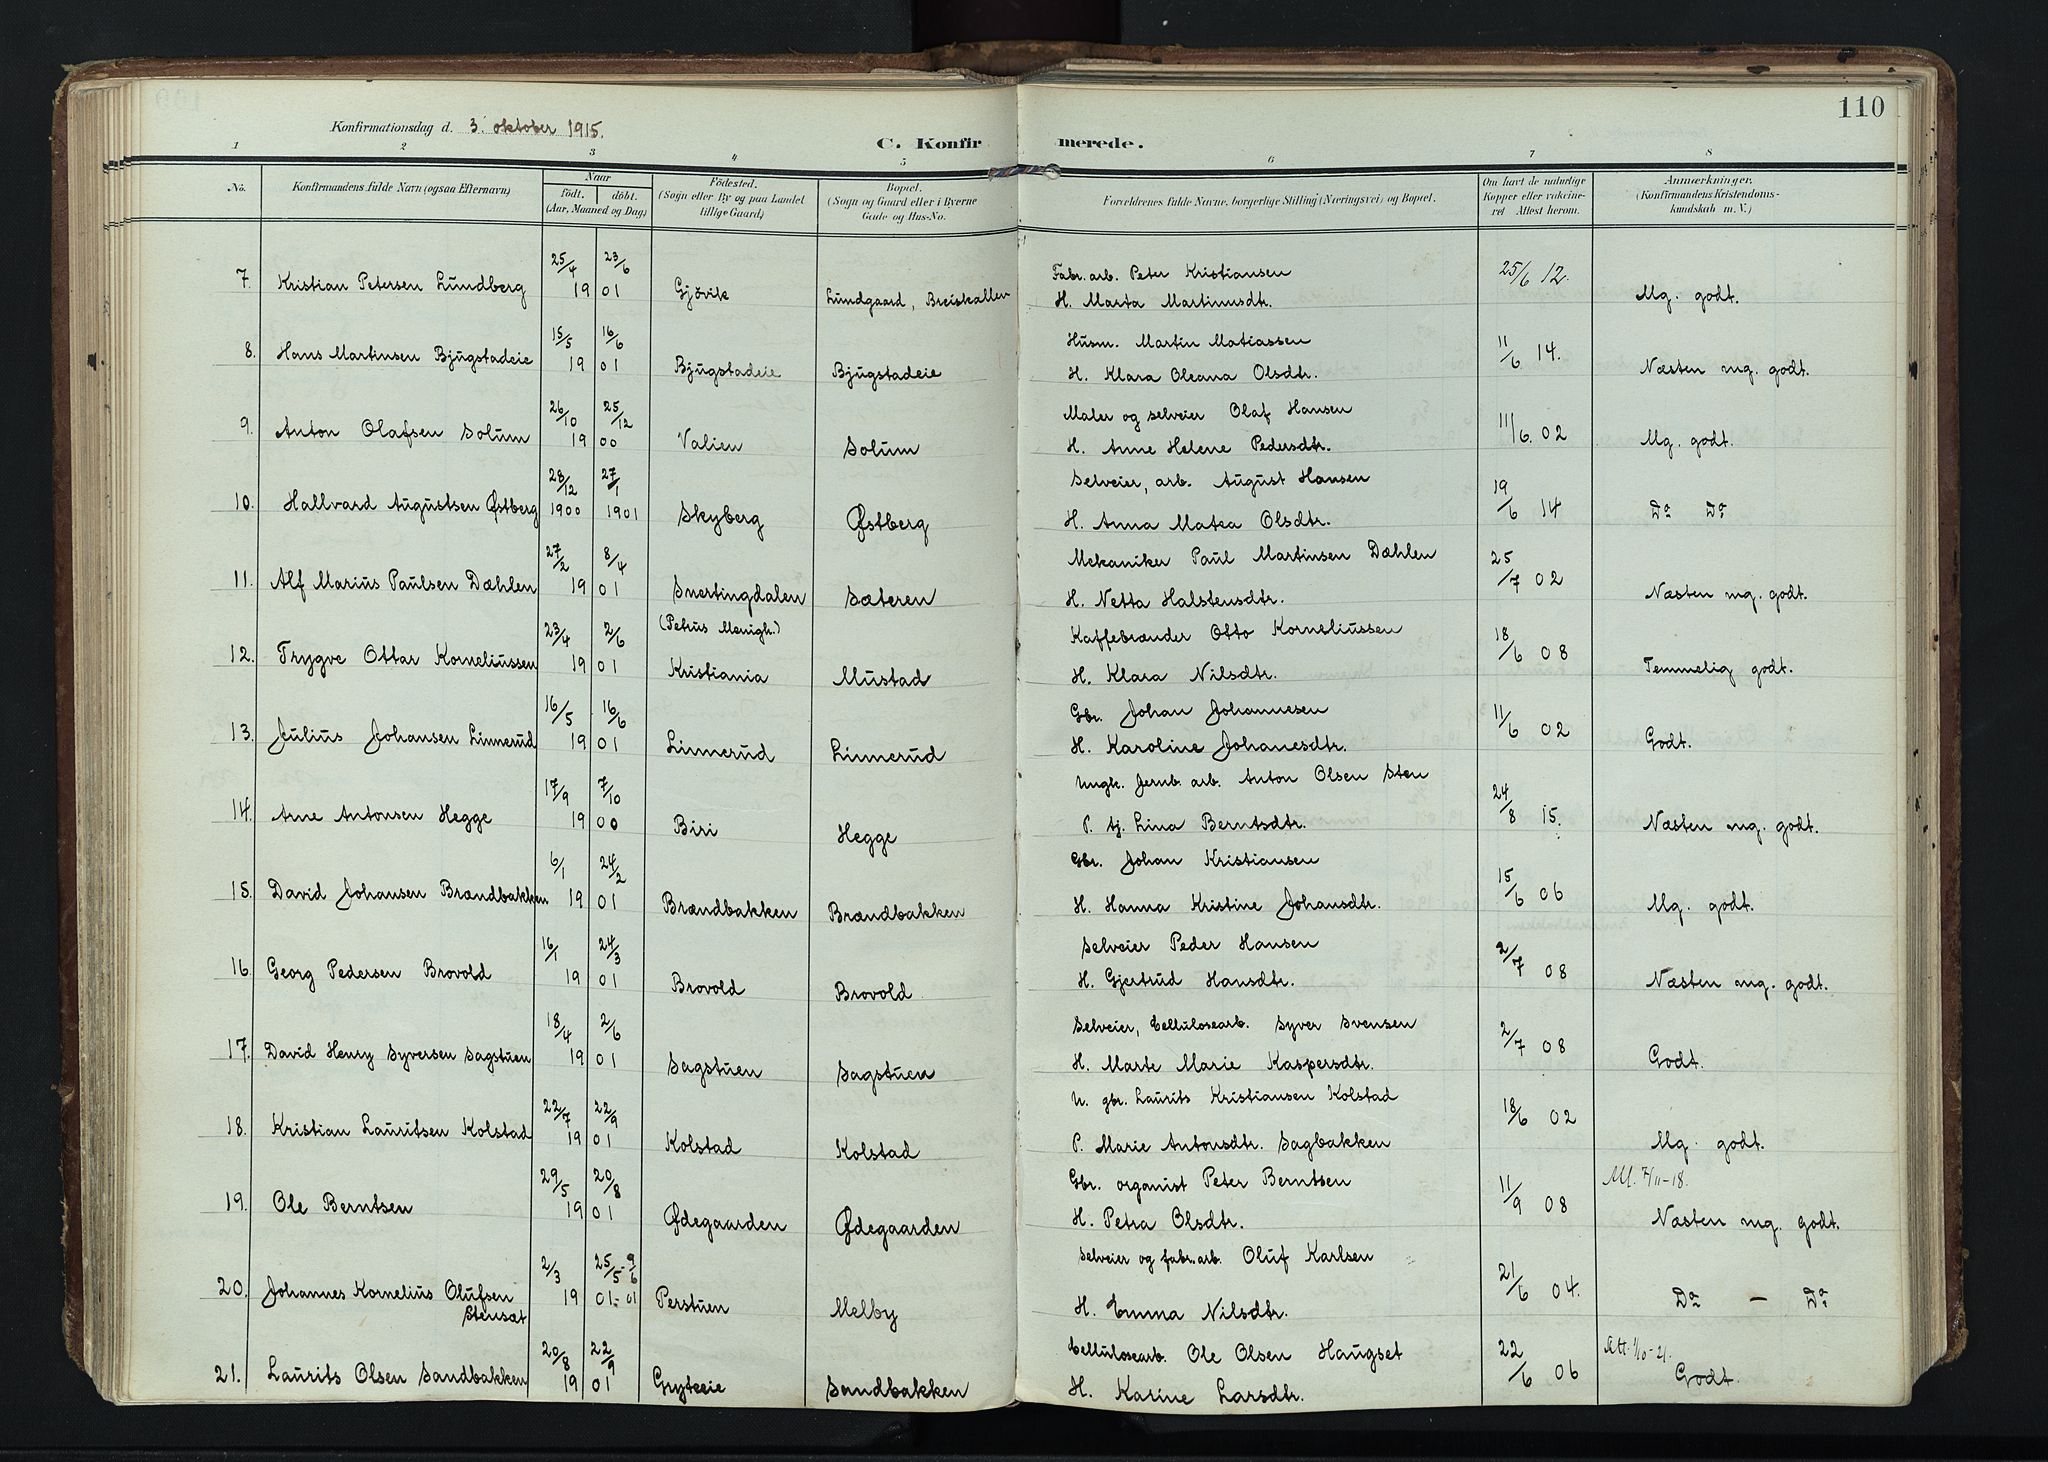 110
Konfirmationsdag d. 3. oktober 1915.
C. Konfirmerede.
1 2 3 4 5 6 7 8
No. Konfirmandens fulde Navn (ogsaa Efternavn) Naar födt. döbt. (Aar, Maaned og Dag) Födested. (Sogn eller By og paa Landet tillige Gaard) Bopæl. (Sogn og Gaard eller i Byerne Gade og Hus-No. Forældrenes fulde Navne, borgerlige Stilling (Næringsvei) og Bopæl. Om havt de naturlige Kopper eller vakcineret Attest herom. Anmærkninger. (Konfirmandens Kristendomskundskab m. V.)
7. Kristian Petersen Lundberg 25/4 1901 23/6 Gjövik Lundgaard, Breiskallen Fabr. arb. Peter Kristiansen 25/6 12. Mg. godt.
H. Marta Martinusdtr.
8. Hans Martinsen Bjugstadeie 15/5 1901 16/6 Bjugstadeie Bjugstadeie Husm. Martin Matiassen 11/6 14. Næsten mg. godt.
H. Klara Oleana Olsdtr.
9. Anton Olafsen Solum 26/10 1900 25/12 Valien Solum Maler og selveier Olaf Hansen 11/6. 02 Mg. godt.
H. Anne Helene Pedersdtr.
10. Hallvard Augustsen Østberg 28/12 1900 27/1 1901 Skyberg Østberg Selveier, arb. August Hansen 19/6 14 Do Do
H. Anna Matea Olsdtr.
11. Alf Marius Paulsen Dæhlen 27/2 1901 8/4 Snertingdalen Sæteren Mekaniker Paul Martinsen Dæhlen 25/7 02 Næsten mg. godt.
H. Netta Halstensdtr.
12. Trygve Ottar Korneliussen 23/4 1901 2/6 (Petrus Menigh.) Kristiania Mustad Kaffebrænder Otto Korneliussen 18/6 08 Temmelig godt.
H. Klara Nilsdtr.
13. Julius Johansen Linnerud 16/5 1901 16/6 Linnerud Linnerud Gbr. Johan Johannesen 11/6 02 Godt.
H. Karoline Johanesdtr.
14. Arne Antonsen Hegge 17/9 1900 7/10 Biri Hegge Ungk. Jernb. arb. Anton Olsen Sten 24/8 15. Næsten mg. godt.
P. tj. Lina Berntsdtr.
15. David Johansen Brændbakken 6/1 1901 24/2 Brændbakken Brændbakken Gbr. Johan Kristiansen 15/6 06 Mg. godt.
H. Hanna Kristine Johansdtr.
16. Georg Pedersen Brovold 16/1 1901 24/3 Brovold Brovold Selveier Peder Hansen 2/7 08 Næsten mg. godt.
H. Gjertrud Hansdtr.
17. David Henry Syversen Sagstuen 18/4 1901 2/6 Sagstuen Sagstuen Selveier, Cellulosearb. Syver Svensen 2/7 08 Godt.
H. Marte Marie Kaspersdtr.
18. Kristian Lauritsen Kolstad 22/7 1901 22/9 Kolstad Kolstad U. gbr. Laurits Kristiansen Kolstad 18/6 02 Mg. godt.
P. Marie Antonsdtr. Sagbakken
19. Ole Berntsen 29/5 1901 20/8 Ødegaarden Ødegaarden Gbr. organist Peter Berntsen 11/9 08 7/11-18. Næsten mg. godt.
H. Petra Olsdtr.
20. Johannes Kornelius Olufsen Stensæt 2/3 1901 25/5-9/6 01 Perstuen Melby Selveier og fabr. arb. Oluf Karlsen 21/6 04. Do - Do
H. Emma Nilsdtr.
21. Laurits Olsen Sandbakken 20/8 1901 22/9 Gryteeie Sandbakken Cellulosearb. Ole Olsen Haugset 22/6 06 Att. 1/10-21. Godt.
H. Karine Larsdtr.